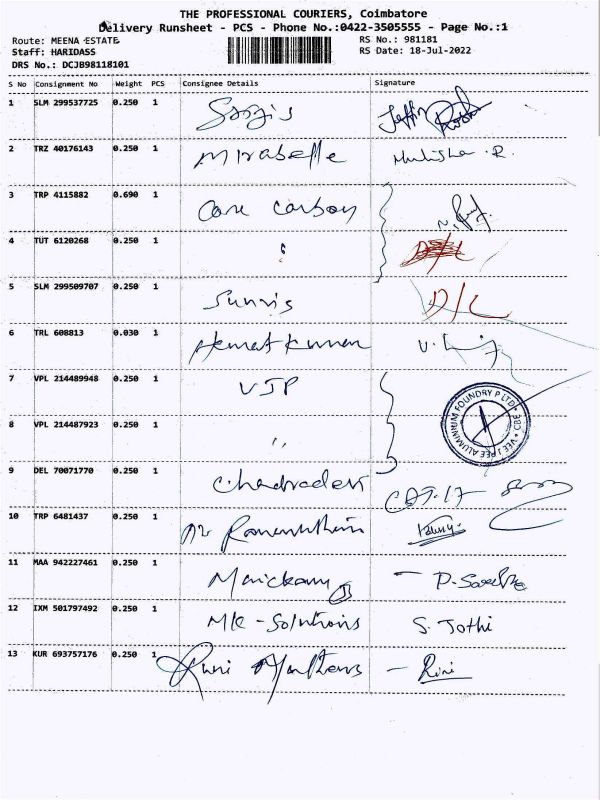 THE PROFESSIONAL COURIERS, Coimbatore
Delivery Runsheet - PCS - Phone No.:0422-3505555 - Page No.:1
Route: MEENA ESTATE RS No.: 981181
Staff: HARIDASS RS Date: 18-Jul-2022
DRS No.: DCJB98118101
S No Consignment No Weight PCS Consignee Details Signature
1 SLM 299537725 0.250 1
2 TRZ 40176143 0.250 1 Mirabelle
3 TRP 4115882 0.690 1 Core carbon
4 TUT 6120268 0.250 1 D/L
5 SLM 299509707 0.250 1 Sunris D/L
6 TRL 608813 0.030 1 Hemat Kumar
7 VPL 214489948 0.250 1 VJP
8 VPL 214487923 0.250 1 ,,
VEE JPEE ALUMINIUM FOUNDRY P LTD CBE
9 DEL 70071770 0.250 1
10 TRP 6481437 0.250 1
11 MAA 942227461 0.250 1
12 IXM 501797492 0.250 1 MK - Solutions S. Jothi
13 KUR 693757176 0.250 1 - Rini